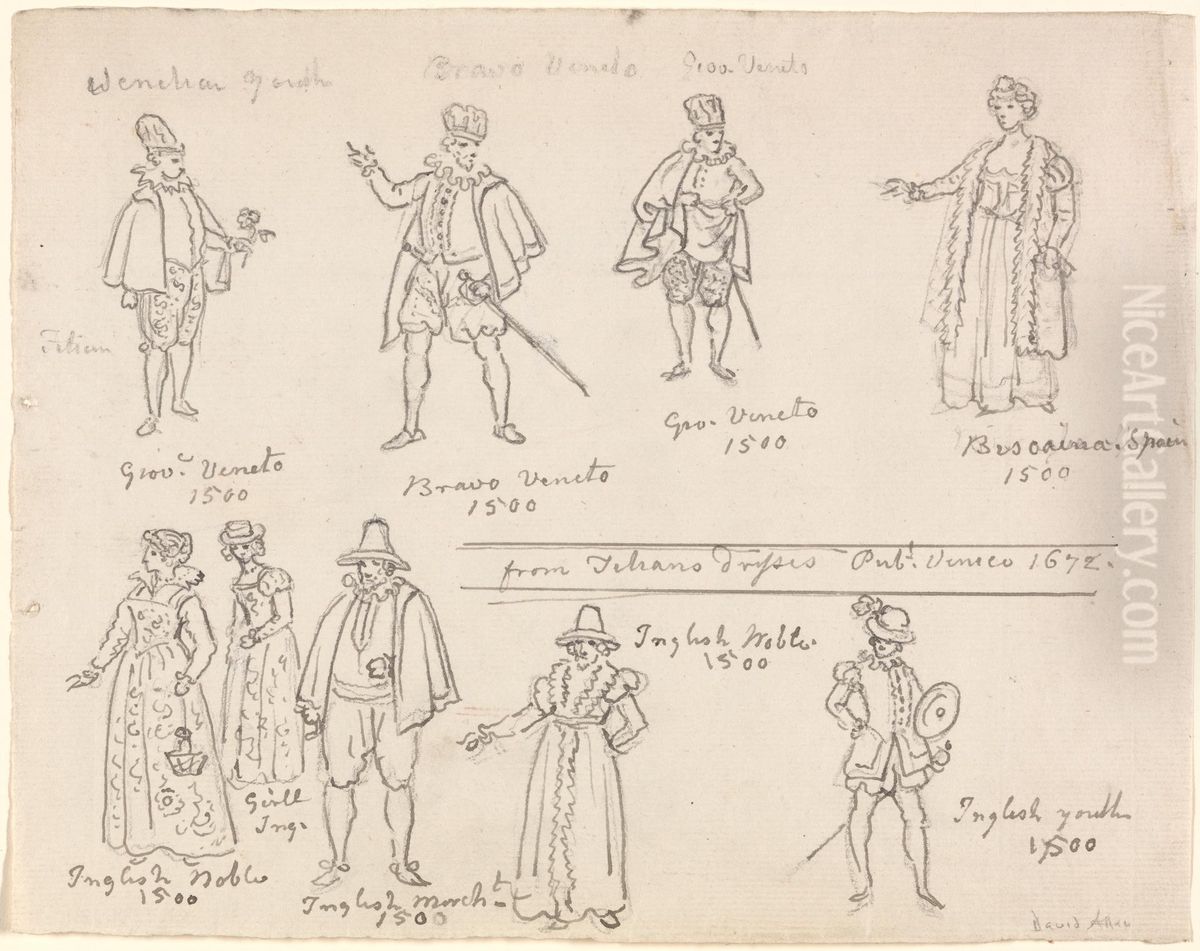 Venetian Youth
Bravo Veneto
Giov. Veneto
Titian
Giov.e Veneto
1500
Bravo Veneto
1500
Gio. Veneto
1500
Biscaina. Spain
1500
from Titians Dresses Pub.t Venice 1672.
Inglish Noble
1500
Girll
Ing.
Inglish March.t
1500
Inglish Noble.
1500
Inglish youth
1500
David Allan
NiceArtGallery.com